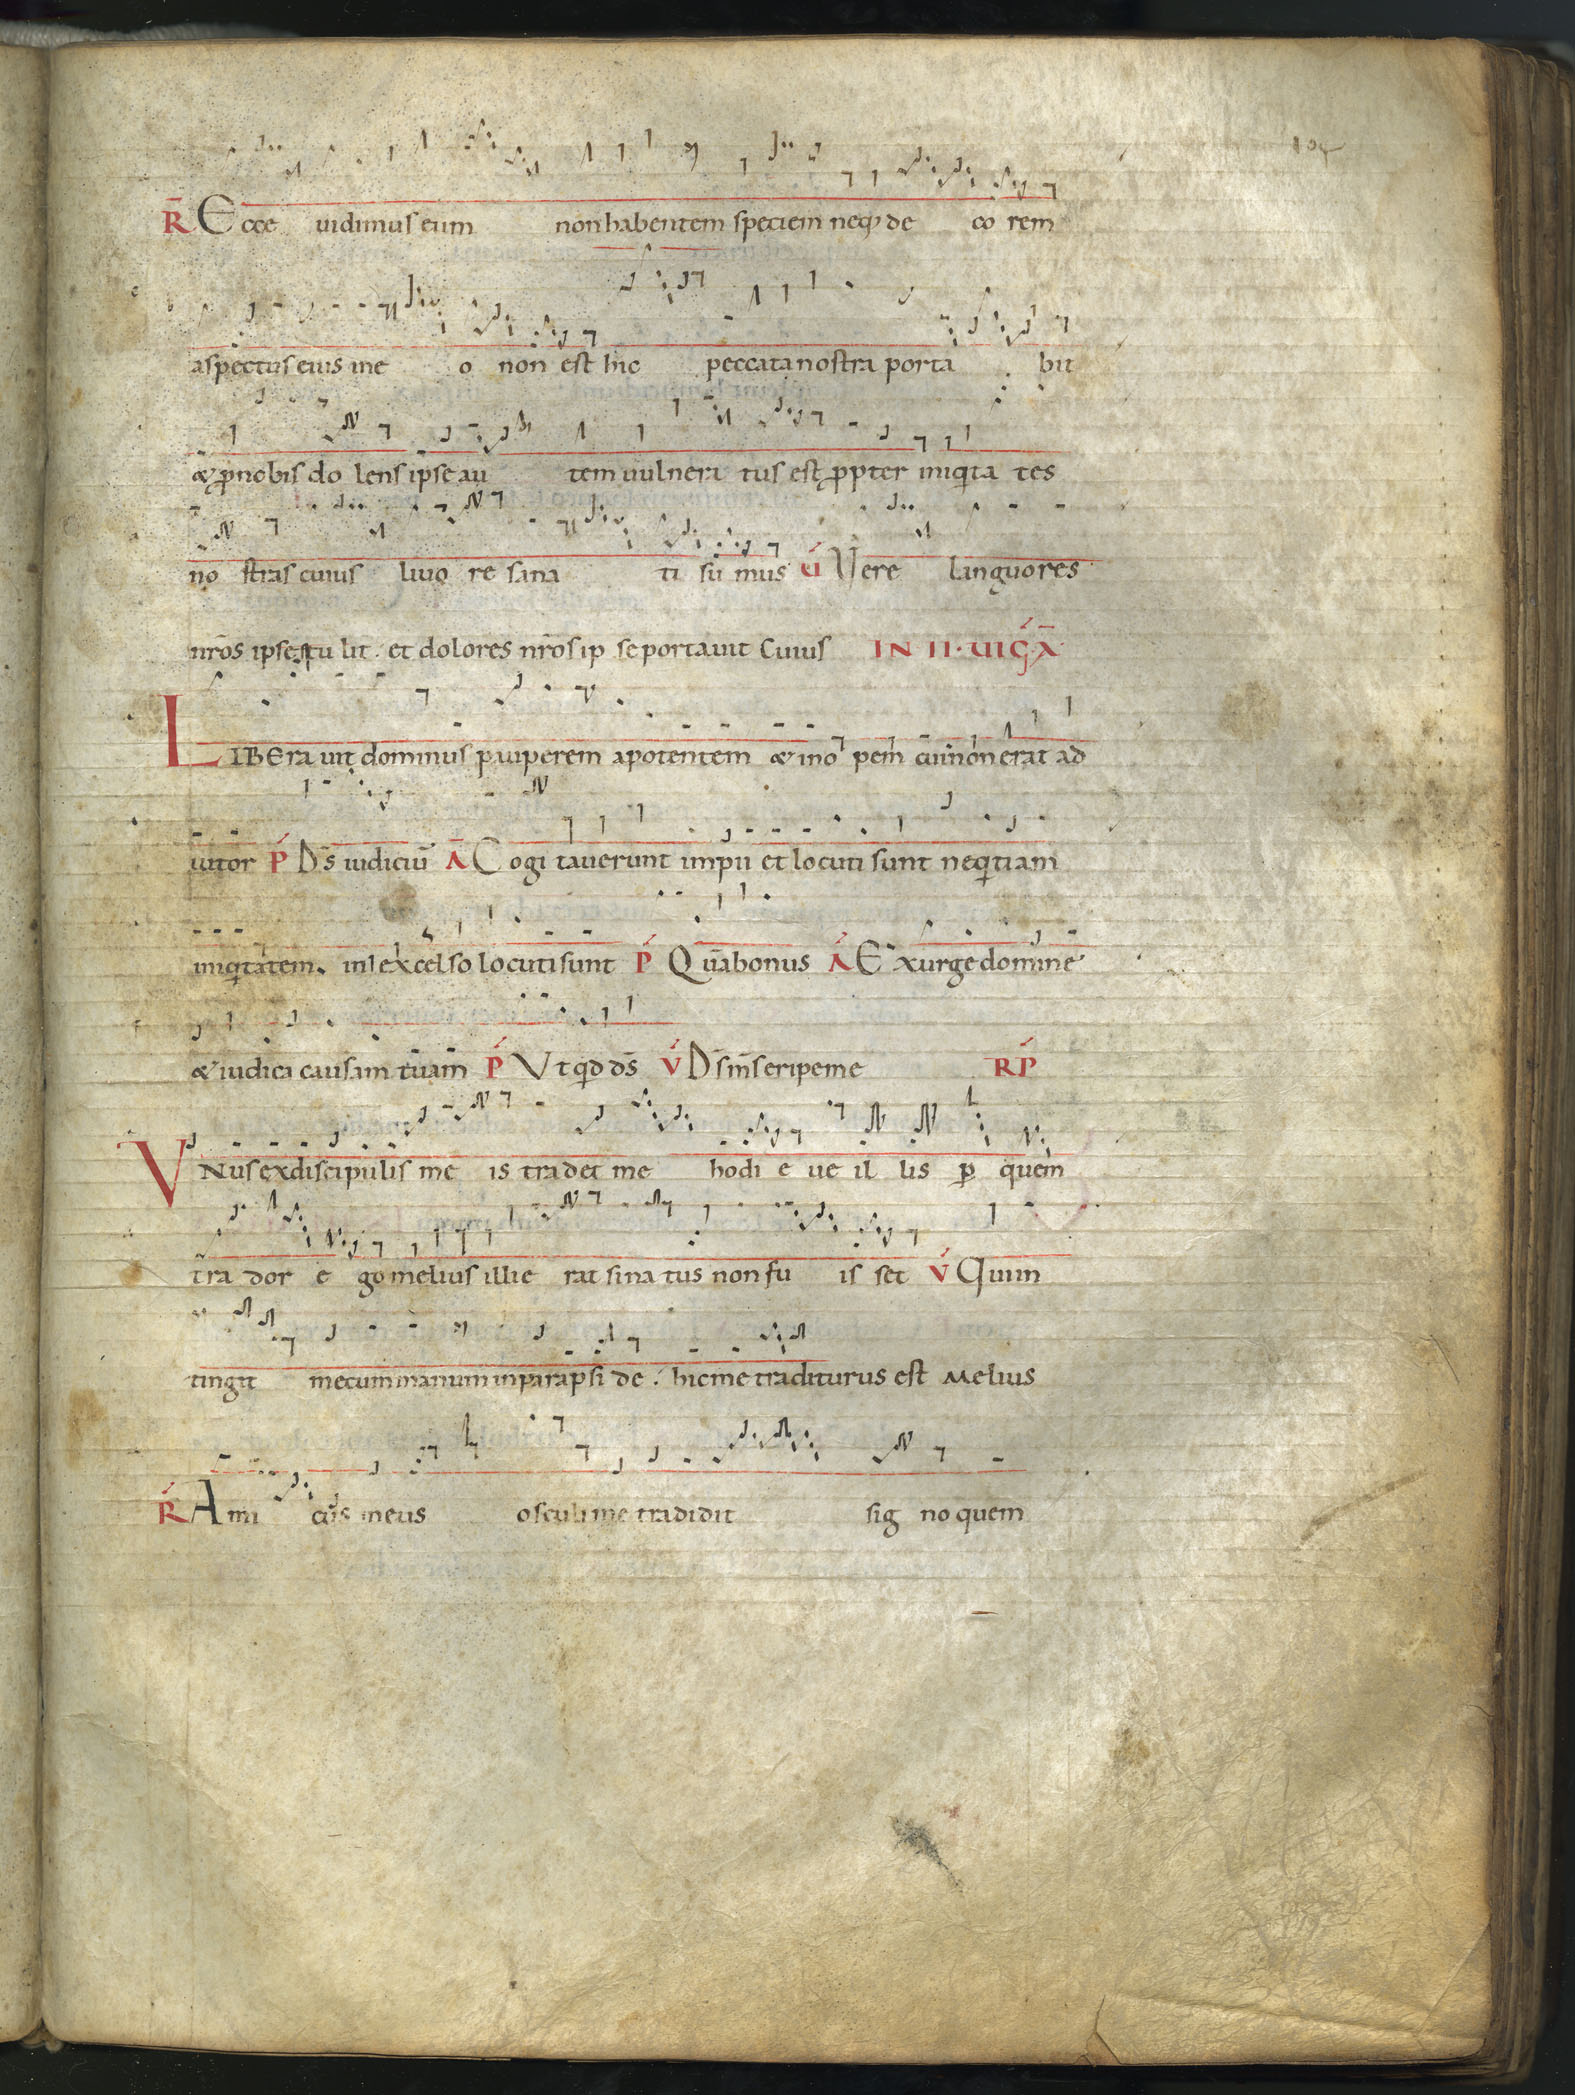 104
R̄ Ecce uidimus eum non habentem speciem neq; de co rem
aspectus eius in e o non est hic peccata nostra porta bit
& ꝓ nobis do lens ipse au tem uulnera tus est ꝓpter iniqita tes
no stras cuius liuo re sana ti su mus V́ Vere languores
nr̄os ipse tu lit. et dolores nr̄os ip se portauit Cuius IN II. UIGA
LIBEra uit dominus pauperem a potentem & ino pem cui non erat ad
iutor Ṕ Ds̄ iudiciū Ā Cogi tauerunt impii et locuti sunt neqitiam
iniqitatem. in excelso locuti sunt Ṕ Quā bonus Á Exurge domine
& iudica causam tuam Ṕ Vt qid ds̄ V́ Ds̄ ms̄ eripe me RṔ
VNus ex discipulis me is tradet me hodi e ue il lis p̱ quem
tra dor e go melius illi e rat si na tus non fu is set V́ Qui in
tingit mecum manum in parapsi de. hic me traditurus est Melius
Ŕ Ami cus meus osculi me tradidit sig no quem